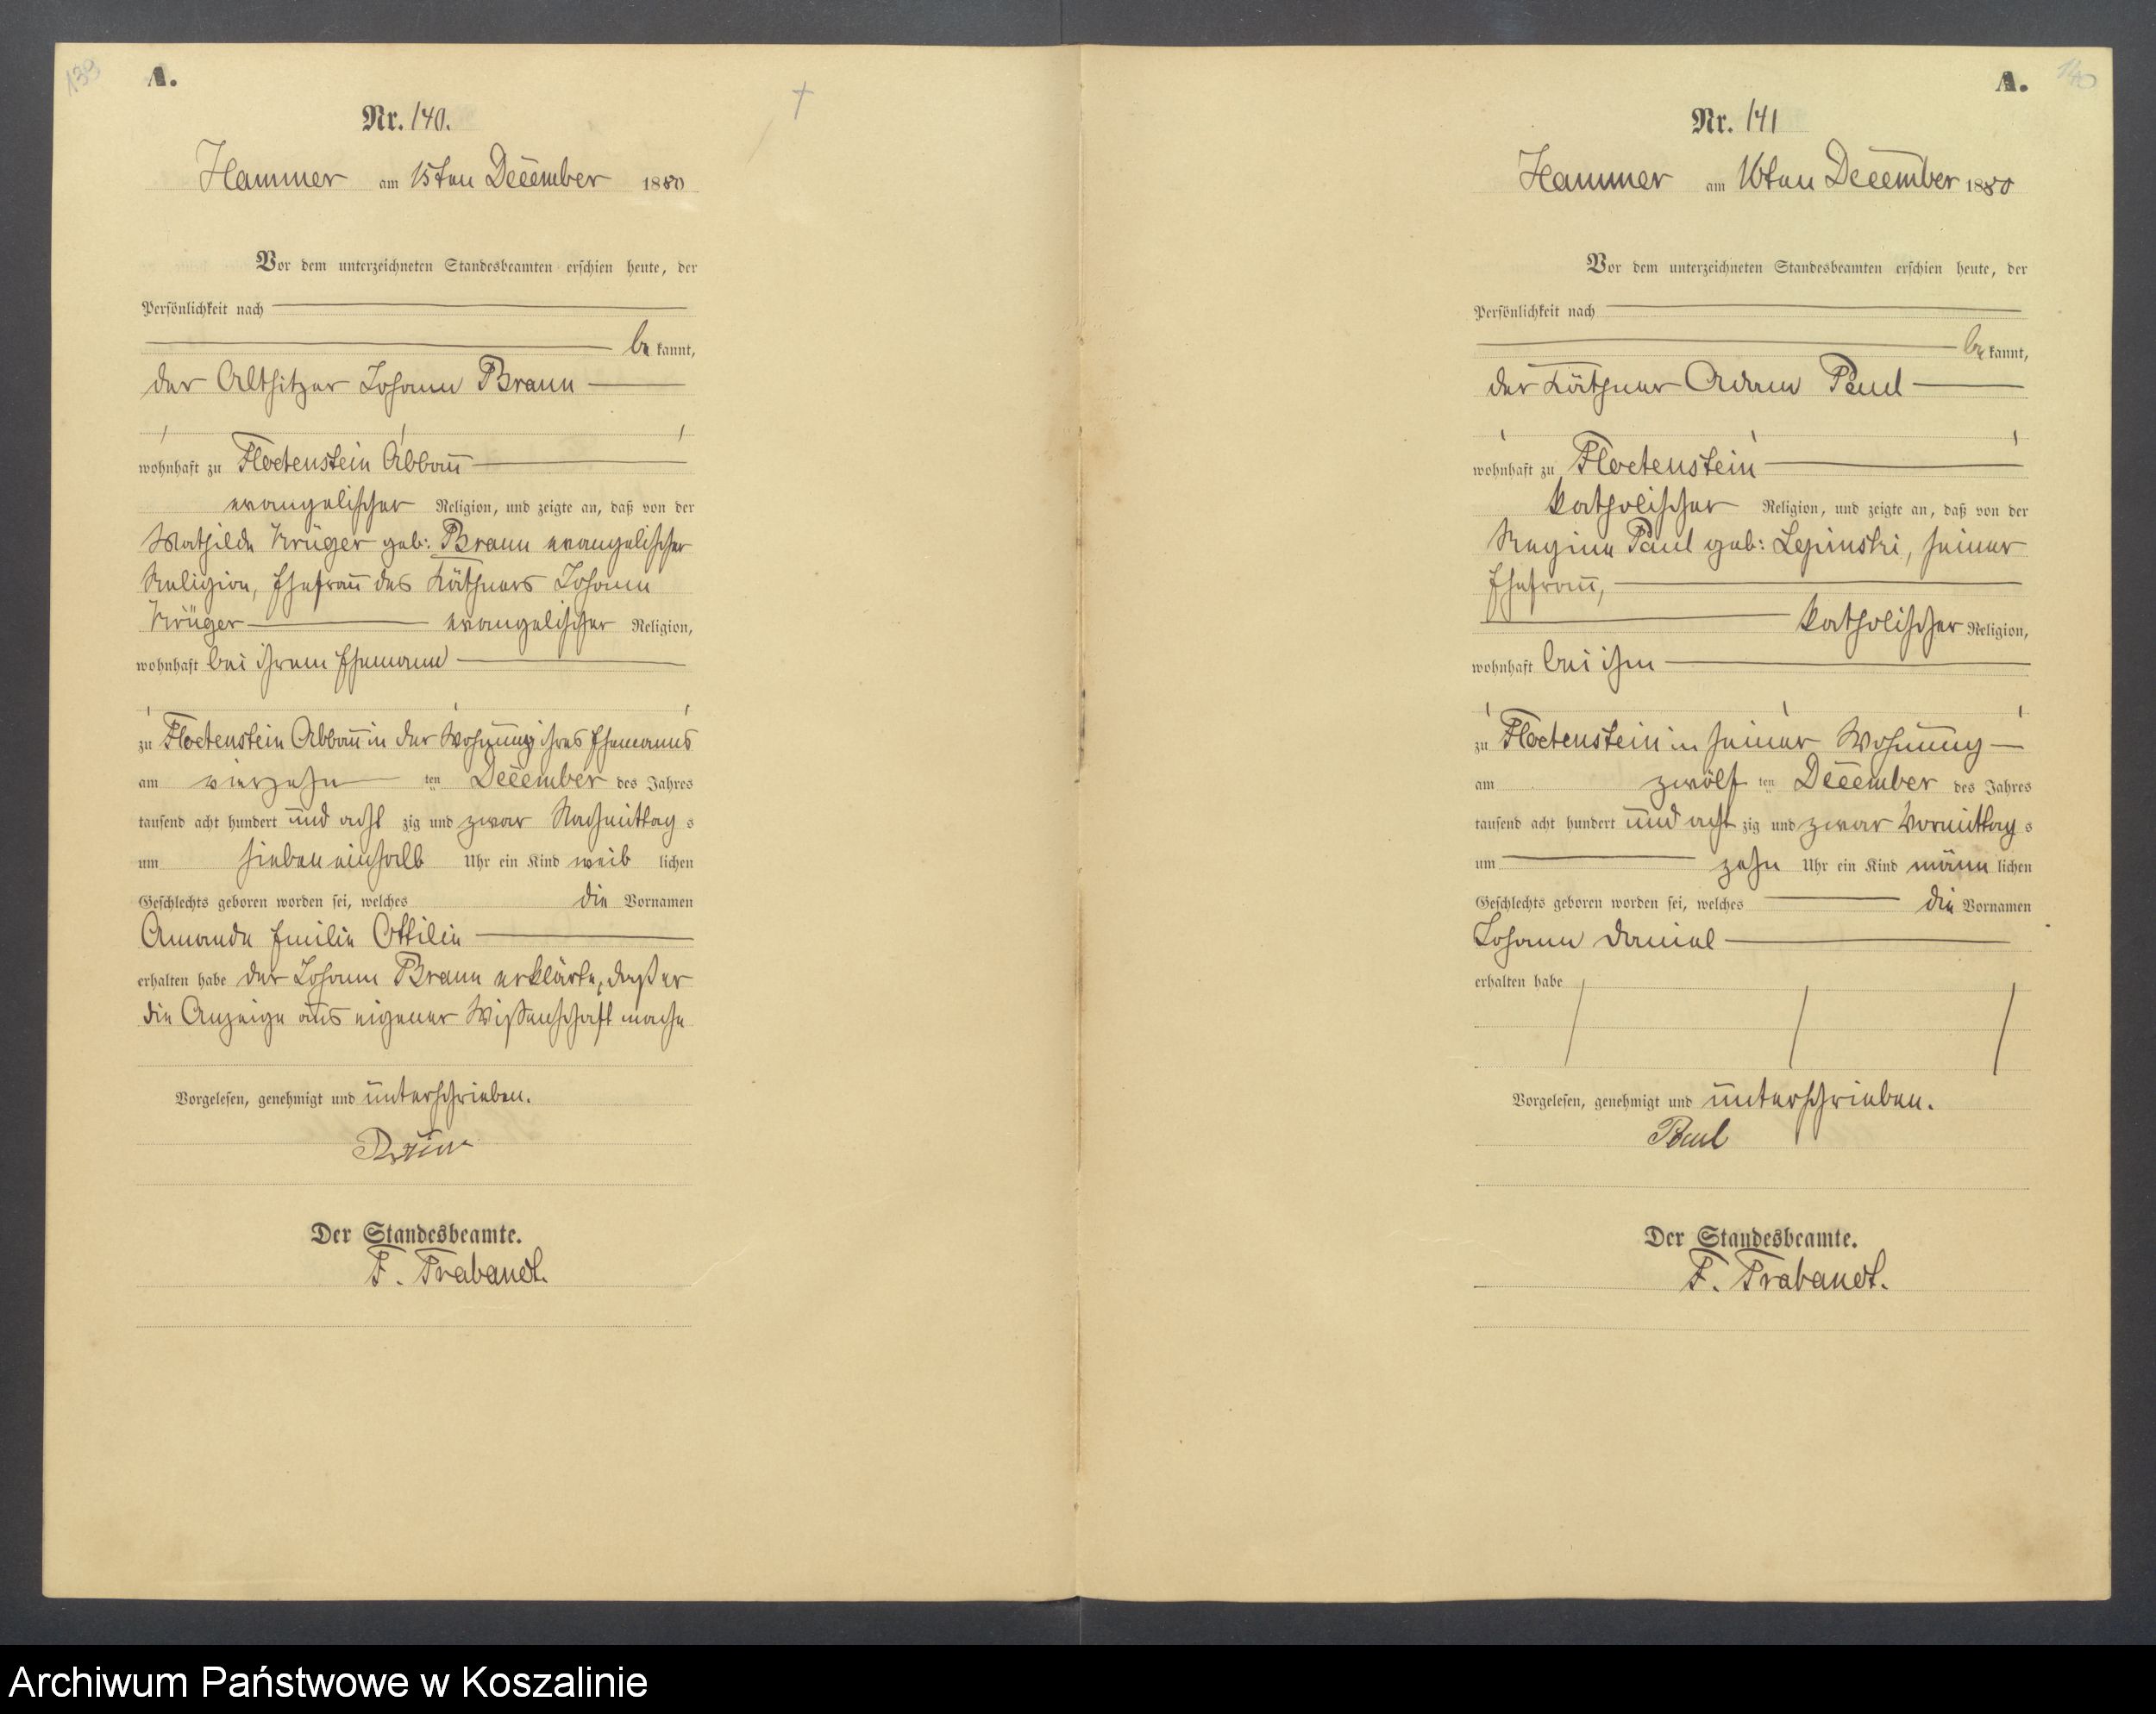 139
A.
Nr. 140.
Hammer am 15ten December 1880
Vor dem unterzeichneten Standesbeamten erschien heute, der
Persönlichkeit nach
be kannt,
der Altsitzer Johann Braun
wohnhaft zu Floetenstein Abbau
evangelischer Religion, und zeigte an, daß von der
Mathilde Krüger geb: Braun evangelischer
Religion, Ehefrau des Käthners Johann
Krüger evangelischer Religion,
wohnhaft bei ihrem Ehemann
zu Floetenstein Abbau in der Wohnung ihres Ehemanns
am vierzehn ten December des Jahres
tausend acht hundert und acht zig und zwar Nachmittag s
um sieben einhalb Uhr ein Kind weib lichen
Geschlechts geboren worden sei, welches die Vornamen
Amande Emilie Ottilie
erhalten habe der Johann Braun erklärte, daß er
die Anzeige aus eigener Wißenschaft mache
Vorgelesen, genehmigt und unterschrieben.
Braun
Der Standesbeamte.
F. Trabandt.
140
A.
Nr. 141
Hammer am 16ten December 1880
Vor dem unterzeichneten Standesbeamten erschien heute, der
Persönlichkeit nach
be kannt,
der Käthner Adam Paul
wohnhaft zu Floetenstein
katholischer Religion, und zeigte an, daß von der
Regine Paul geb: Lepinski, seiner
Ehefrau,
katholischer Religion,
wohnhaft bei ihm
zu Floetenstein in seiner Wohnung
am zwölf ten December des Jahres
tausend acht hundert und acht zig und zwar Vormittag s
um zehn Uhr ein Kind männ lichen
Geschlechts geboren worden sei, welches die Vornamen
Johann Daniel
erhalten habe
Vorgelesen, genehmigt und unterschrieben.
Paul
Der Standesbeamte.
F. Trabandt.
Archiwum Państwowe w Koszalinie